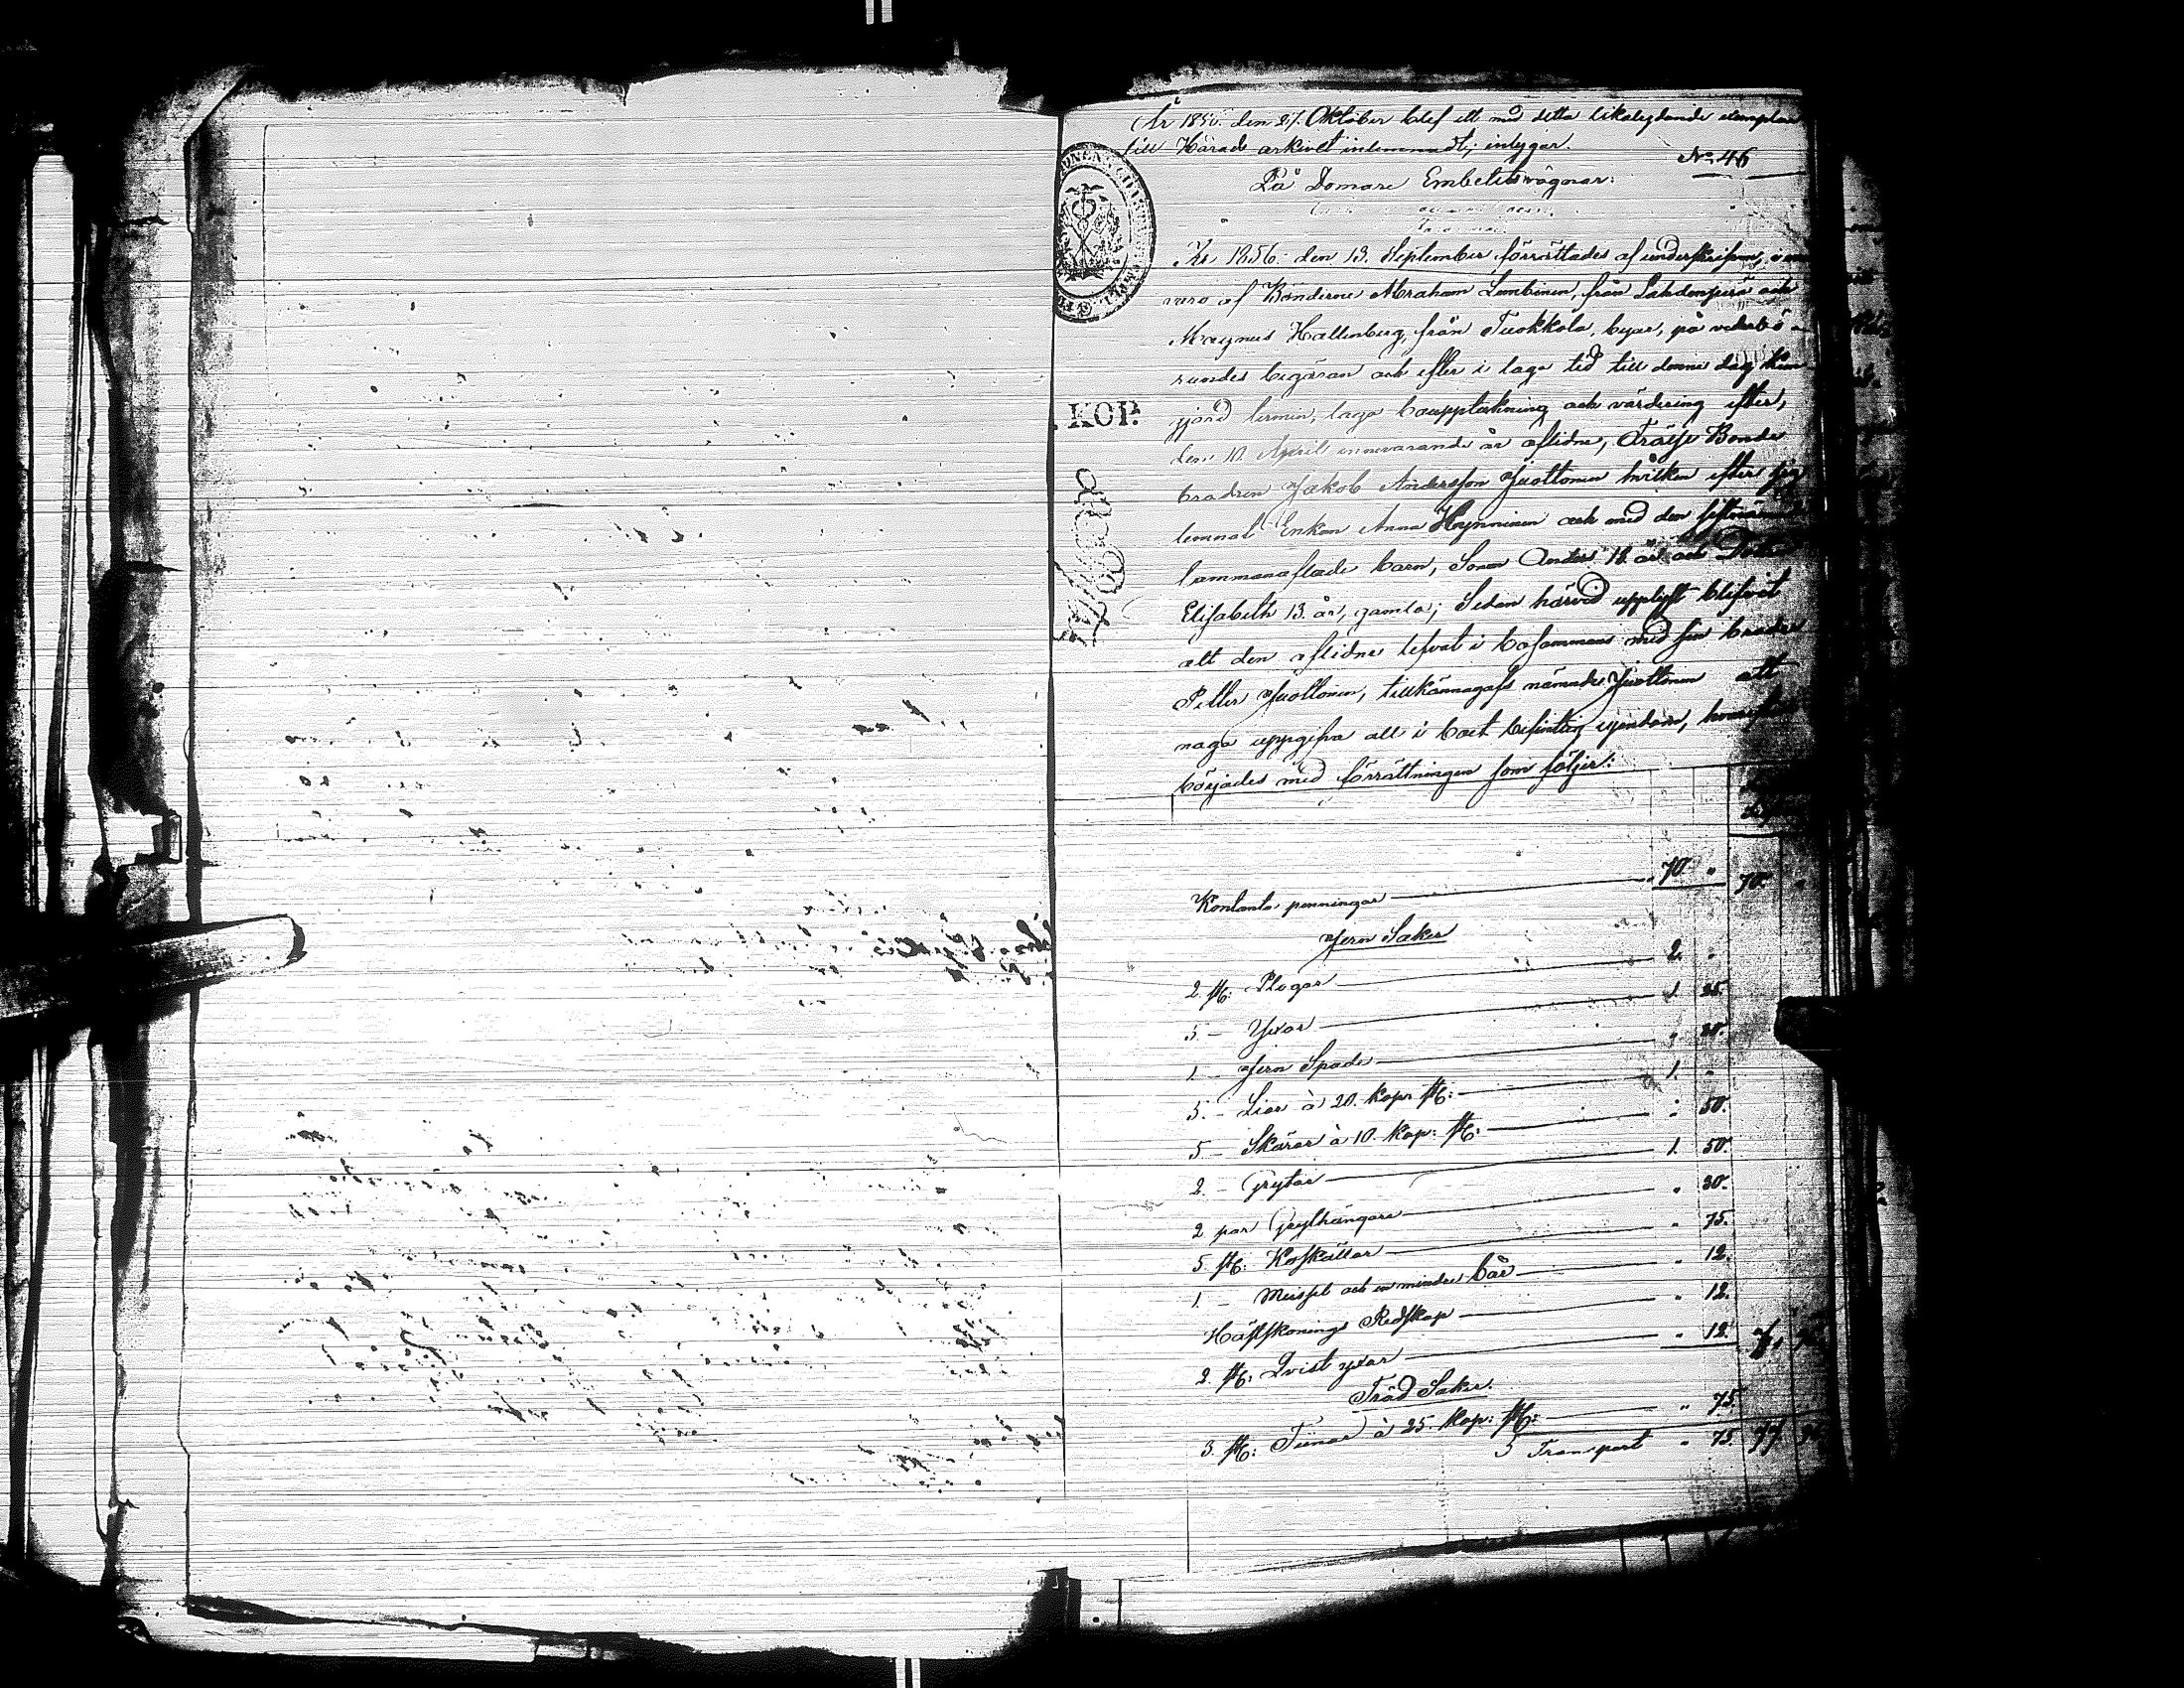 År 1856. den 27. Oktober blef ett med detta likalydande exemplar
till Härads arkivet inlemnadt; intygar.
No 46
På Domare Embetets vägnar:
År 1856. den 13. September förrättades af underskrifven, i när-
varo af Bönderne Abraham Lembinen, från Lahdenperä och
Magnus Hallenberg, från Tuokkola, byar, på vederbö-
randes begäran och efter i laga tid till denne dag kun-
gjord termin, laga bouppteckning och värdering efter,
den 10. April innevarande år aflidne, Frälse Bonde
brodren Jakob Andersson Juottonen hvilken efter sig
lemnat Enkan Anna Hynninen och med den sistnämnde
sammanaflade barn, Sonen Anders 18. år och
Elisabeth 13. år, gamla; Sedan härvid upplyst blifvit
att den aflidne lefvat i bosammans med sin broder
Petter Juottonen, tillkännagafs nämnde Juottonen att
noga uppgifva allt i boet befintlig egendom,
börjades med förrättningen som följer:
KOP.
Kontanta penningar 70 " 70. "
Jern Saker
2 st: Plogar 2. "
5 - Yxor 1. 25.
1. - Jern Spade " 20.
5. - Liar à 20. kop. st: 1. "
5 - Skäror à 10. kop: st: " 50.
2. - Grytor 1. 50.
2 par Grythängare " 20.
5. st: Koskällor " 75.
1. - Mussel och en mindre bår " 12.
Hästskonings Redskap " 12.
2. st: Qvist yxor " 12.
Träd Saker.
3. st: Tiinor à 25. kop: st: " 75.
Transport " 75. 77